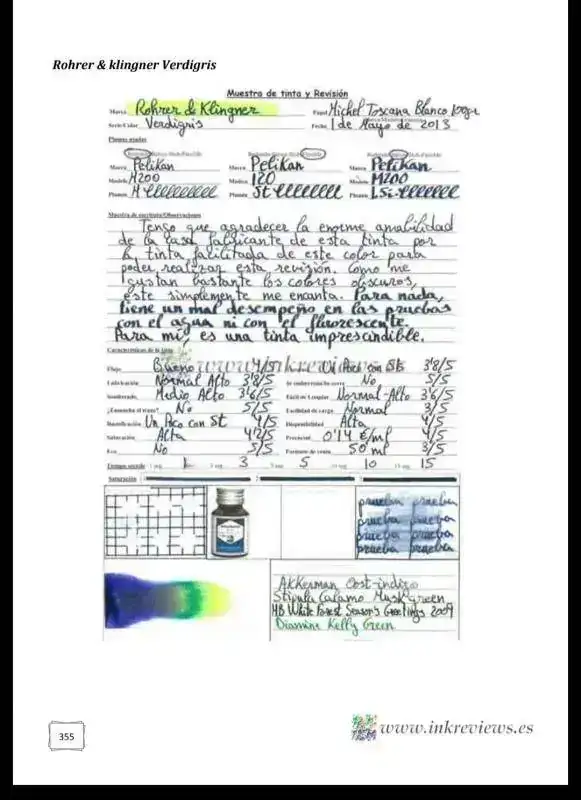 Rohrer & klingner Verdigris
Muestra de tinta y Revisión
Marca Rohrer & Klingner Papel Michel Toscana Blanco 100gr
Serie/Color Verdigris Fecha 1 de Mayo de 2013
Plumas usadas
Marca Pelikan Marca Pelikan Marca Pelikan
Modelo M200 Modelo 120 Modelo M200
Plumín M Plumín St Plumín
Muestra de escritura/Observaciones
Tengo que agradecer la enorme amabilidad
de la casa fabricante de esta tinta por
la tinta facilitada de este color para
poder realizar esta revisión. Como me
gustan bastante los colores obscuros,
éste simplemente me encanta. Para nada,
tiene un mal desempeño en las pruebas
con el agua ni con el fluorescente.
Para mí, es una tinta imprescindible.
Características de la tinta
www.inkreviews.es
Flujo Bueno 4/5 Un Poco con St 3'8/5
Lubricación Normal Alto 3'8/5 No 5/5
Sombreado Medio Alto 3'6/5 Fácil de Limpiar Normal-Alto 3'6/5
No 5/5 Facilidad de carga Normal 3/5
Un Poco con St 4/5 Disponibilidad Alta 4/5
Saturación Alta 4'2/5 Precio/ml 0'14 €/ml 4/5
No 5/5 Formato de venta 50 ml 3/5
Tiempo secado 1 seg 1 3 5 10 15 seg 15
Saturación 1 2 3
prueba prueba
prueba prueba
prueba prueba
prueba prueba
Akkerman Oost-indigo
Stipula Calamo Musk green
MB White Forest Season's Greetings 2009
Diamine Kelly Green
355
www.inkreviews.es